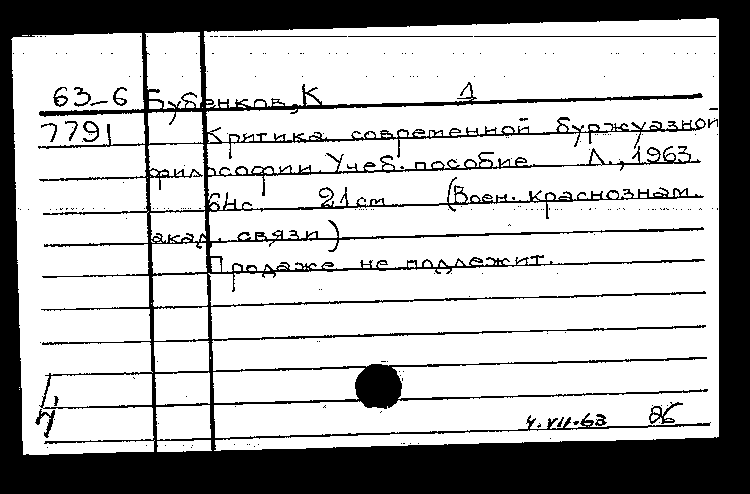 63-6 Бубенков, К 1
7791 Критика современной буржуазной
философии. Учеб. пособие. Л., 1963.
64с. 21см (Воен. краснознам.
акад. связи)
Продаже не подлежит.
4.VII.63